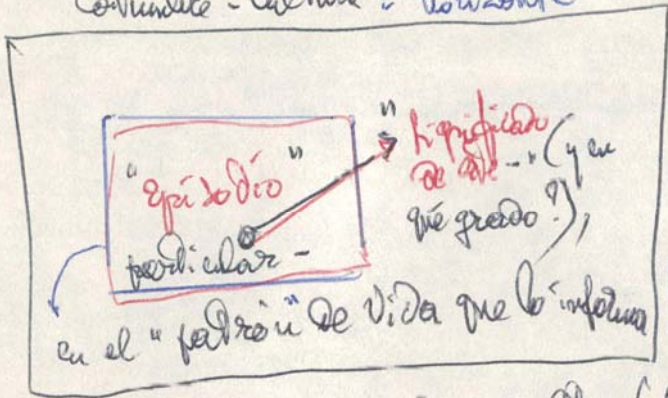 "Episodio"
particular -
"Significado
de este -" (y en
qué grado?),
en el "padrón" de vida que lo informa